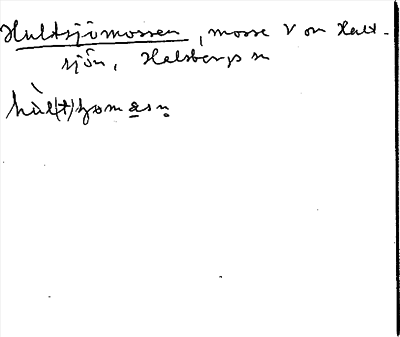 Hultsjömossen, mosse V om Hult-
sjön, Halsbergs sn
hùl(t)ʃomæsn̥